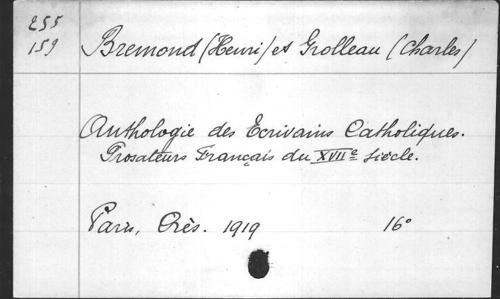 255
159
Bremond (Henri) et Grolleau (Charles)
Anthologie des Ecrivains Catholiques.
Prosateurs Français du XVIIe Siècle.
Paris, Crès. 1919 16°